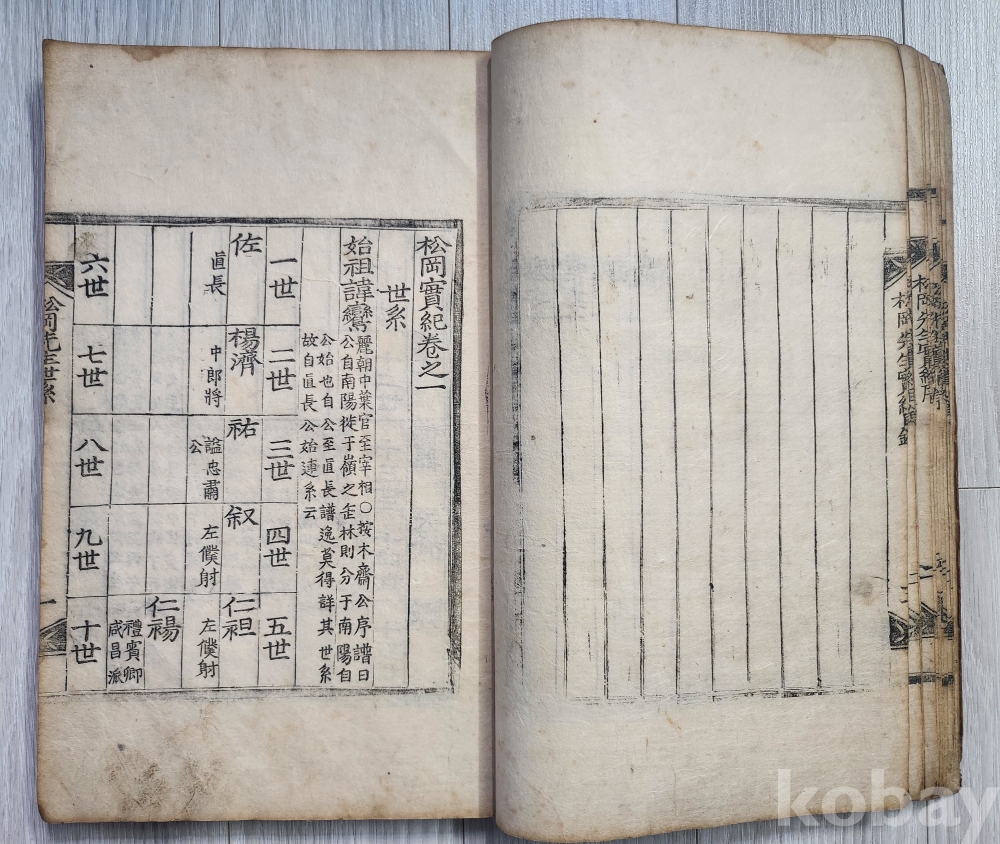 松岡先生實紀序
松岡先生實紀目錄
二
松岡實紀卷之一
世系
始祖諱鸞
麗朝中葉官至宰相○按木齋公序譜曰
公自南陽徙于嶺之缶林則分于南陽自
公始也自公至直長譜逸莫得詳其世系
故自直長公始連系云
一世 二世 三世 四世 五世
佐 楊濟 祐 叙 仁袒
直長 中郎將 謚忠肅公 左僕射 左僕射
仁裼
禮賓卿
咸昌派
六世 七世 八世 九世 十世
松岡先生世系 一
kobay